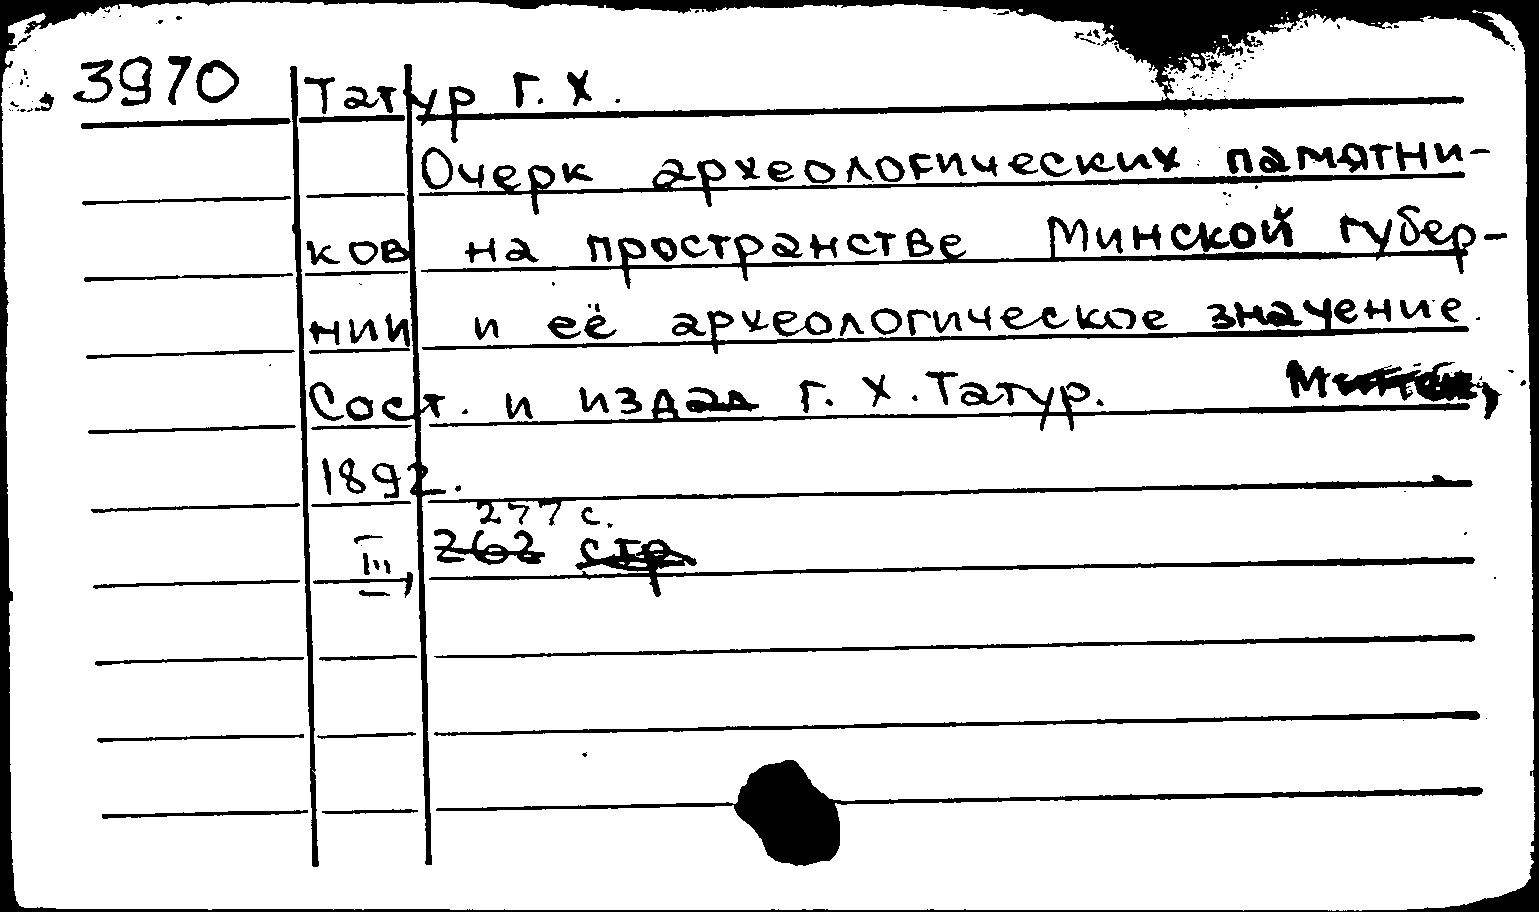 3970 Татур Г. Х.
Очерк археологических памятни-
ков на пространстве Минской губер-
нии и её археологическое значение.
Сост. и издал Г. Х. Татур. Минск,
1892.
277 с.
III, 262 стр